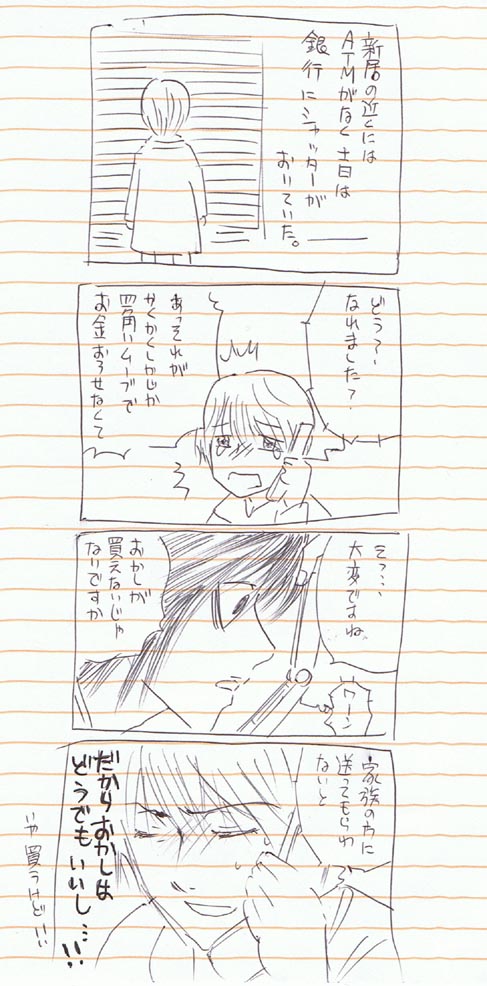 新居の近くには
ATMがなく土日は
銀行にシャッターが
おりていた。
どう？…
なれました？
あっそれが
かくかくしかじか
四角いムーブで
お金おろせなくて
そっ…
大変ですね
おかしが
買えないじゃ
ないですか
ワーン
家族の方に
送ってもらわ
ないと
だからおかしは
どうでもいいし…!!
いや買うけど!!